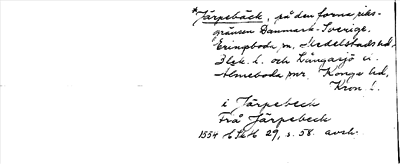 *Järpebäck, på den forna riks-
gränsen Danmark-Sverige,
Eringsboda sn, Medelstads hd,
Blek. l. och Långasjö ci
Älmeboda snr, Konga hd,
Kron. l.
i Järpebeck
Frå Järpebeck
1554 29, s. 58. avsk.